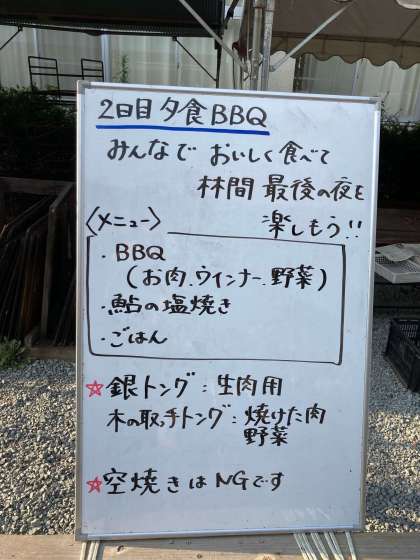 2日目 夕食 BBQ
みんなで おいしく食べて
林間 最後の夜を
楽しもう!!
〈メニュー〉
・BBQ
(お肉、ウインナー、野菜)
・鮎の塩焼き
・ごはん
☆銀トング:生肉用
木の取っ手トング:焼けた肉
野菜
☆空焼きはNGです